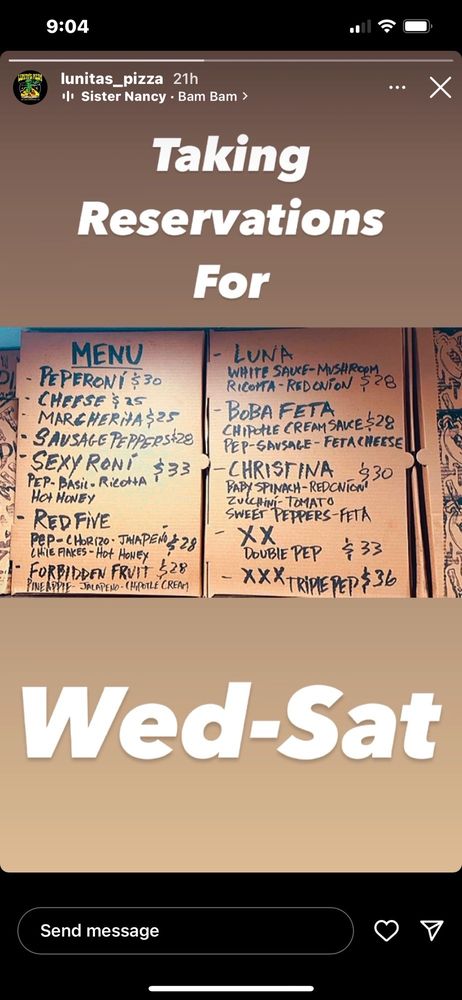 9:04
lunitas_pizza 21h
Sister Nancy · Bam Bam >
Taking
Reservations
For
MENU
- PEPERONI $30
- CHEESE $25
- MARGHERITA $25
- SAUSAGE PEPPERS $28
- SEXY RONI $33
PEP - BASIL - RICOTTA
HOT HONEY
- RED FIVE
PEP - CHORIZO - JALAPEÑO $28
CHILE FLAKES - HOT HONEY
- FORBIDDEN FRUIT $28
PINEAPPLE - JALAPENO - CHIPOTLE CREAM
- LUNA
WHITE SAUCE - MUSHROOM
RICOTTA - RED ONION $28
- BOBA FETA
CHIPOTLE CREAM SAUCE $28
PEP - SAUSAGE - FETA CHEESE
- CHRISTINA $30
BABY SPINACH - RED ONION
ZUCCHINI - TOMATO
SWEET PEPPERS - FETA
- XX
DOUBLE PEP $33
- XXX TRIPLE PEP $36
Wed-Sat
Send message